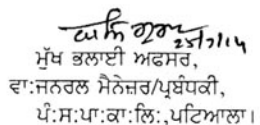 25/7/14
ਮੁੱਖ ਭਲਾਈ ਅਫਸਰ,
ਵਾ:ਜਨਰਲ ਮੈਨੇਜਰ/ਪ੍ਰਬੰਧਕੀ,
ਪੰ:ਸ:ਪਾ:ਕਾ:ਲਿ:,ਪਟਿਆਲਾ।